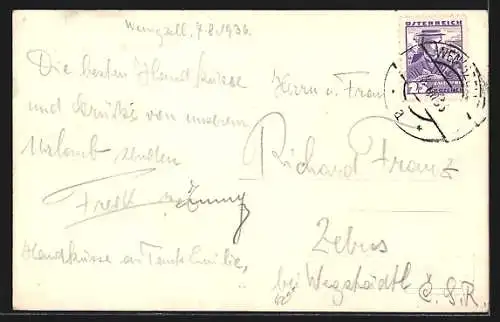 Wenigzell, 7.8.1936.
Die besten Handküsse
und Grüße von unserem
Urlaub senden
Handküsse an Tante Emilie,
ÖSTERREICH
Herrn u. Frau
Richard Franz
Zebus
bei Wegstädtl
Č.S.R.